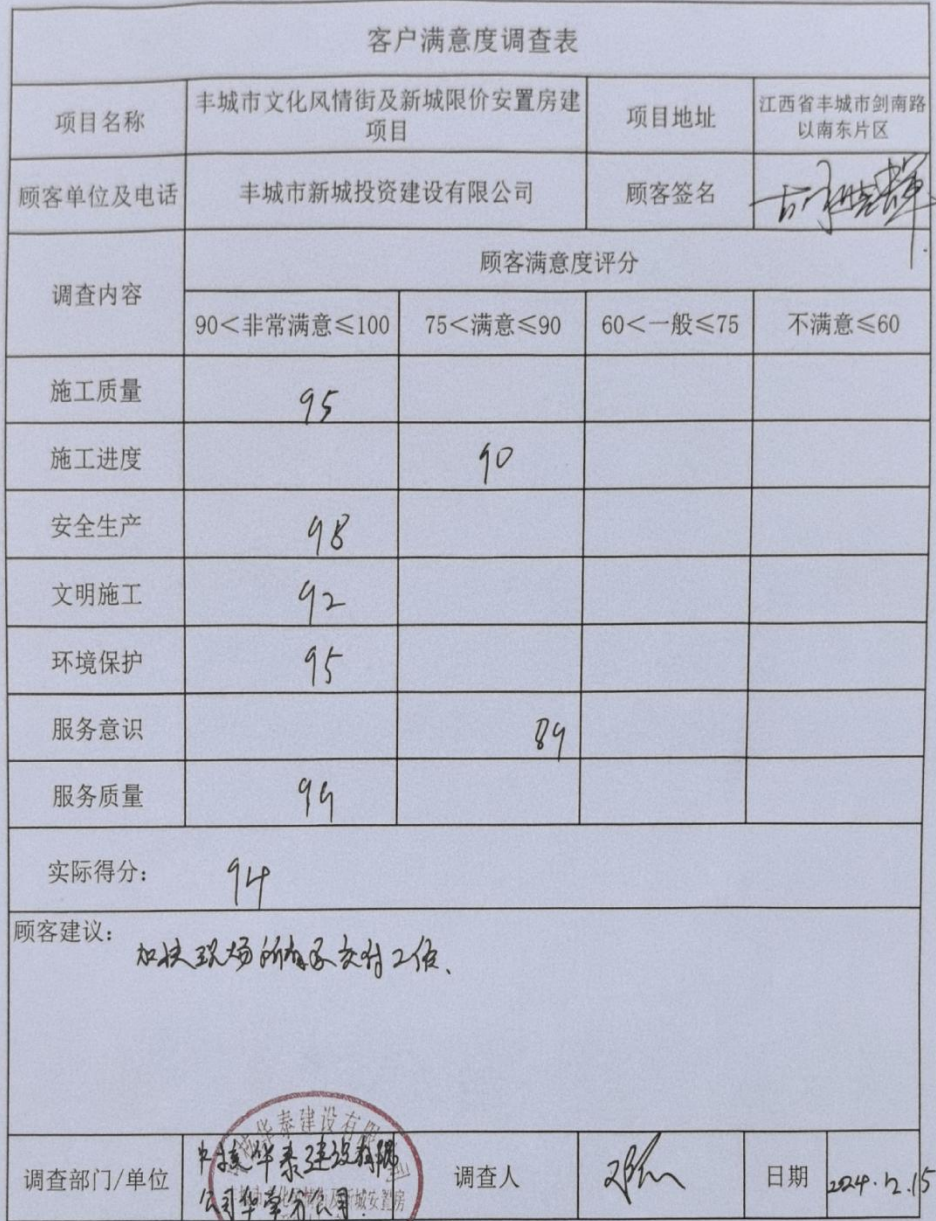 客户满意度调查表
项目名称
丰城市文化风情街及新城限价安置房建
项目
项目地址
江西省丰城市剑南路
以南东片区
顾客单位及电话
丰城市新城投资建设有限公司
顾客签名
调查内容
顾客满意度评分
90＜非常满意≤100
75＜满意≤90
60＜一般≤75
不满意≤60
施工质量
95
施工进度
90
安全生产
98
文明施工
92
环境保护
95
服务意识
89
服务质量
99
实际得分：
94
顾客建议：
加快现场 交付工作、
调查部门/单位
华泰建设有限
公司华 分公司
调查人
日期
2024.12.15